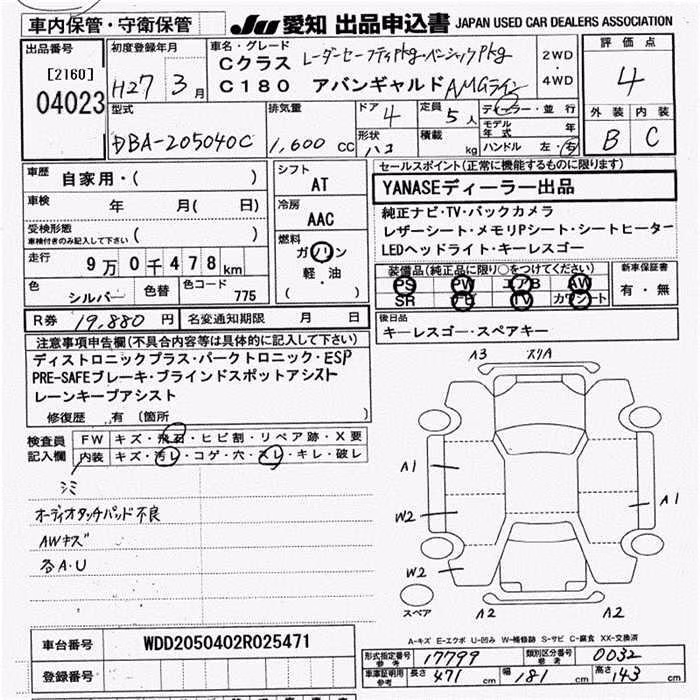 車内保管・守衛保管
JU 愛知 出品申込書 JAPAN USED CAR DEALERS ASSOCIATION
出品番号
[2160]
04023
初度登録年月
H27 3月
車名・グレード
Cクラス レーダーセーフティPkg・ベーシックPkg
C180 アバンギャルド AMGライン
2WD
・
4WD
評価点
4
外装 内装
B C
型式
DBA-205040C
排気量
1,600 CC
ドア 4
形状 ハコ
定員 5 人
積載 kg
ディーラー・並行
モデル年式 年
ハンドル 左・右
車歴 自家用・( )
車検 年 月( 日)
受検形態
車検付きのみ記入して下さい ( )
走行 9万0千478km
色 シルバー 色替 色コード 775
シフト
AT
冷房
AAC
燃料
ガソリン
軽・油
( )
R券 19,880 円 名変通知期限 月 日
セールスポイント(正常に機能するものに限ります)
YANASEディーラー出品
純正ナビ・TV・バックカメラ
レザーシート・メモリPシート・シートヒーター
LEDヘッドライト・キーレスゴー
装備品(純正品に限り○をつけてください)
PS PW エアB AW
SR ナビ TV カワシート
新車保証書
有・無
後日品
キーレスゴー・スペアキー
注意事項申告欄(不具合内容等は具体的に記入して下さい)
ディストロニックプラス・パークトロニック・ESP
PRE-SAFEブレーキ・ブラインドスポットアシスト
レーンキープアシスト
修復歴 有 (箇所 )
検査員記入欄
FW キズ・飛石・ヒビ割・リペア跡・X要
内装 キズ・汚レ・コゲ・穴・スレ・キレ・破レ
シミ
オーディオタッチパッド不良
AWキズ
各A・U
A3 スリA
A1
W2
W2
A1
スペア
A2 A2
A-キズ E-エクボ U-凹み W-補修跡 S-サビ C-腐食 XX-交換済
車台番号 WDD2050402R025471
登録番号
形式指定番号 参考 17799 類別区分番号 参考 0032
車庫証明用 参考 長さ 471 幅 181 高さ 143 cm